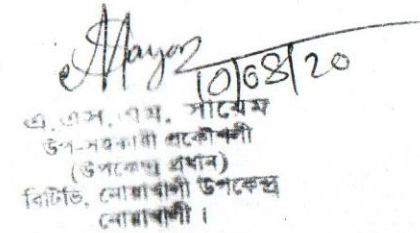 10/08/20
এ. এস. এম. সায়েম
উপ-সহকারী প্রকৌশলী
(উপকেন্দ্র প্রধান)
বিটিভি, নোয়াখালী উপকেন্দ্র
নোয়াখালী ।